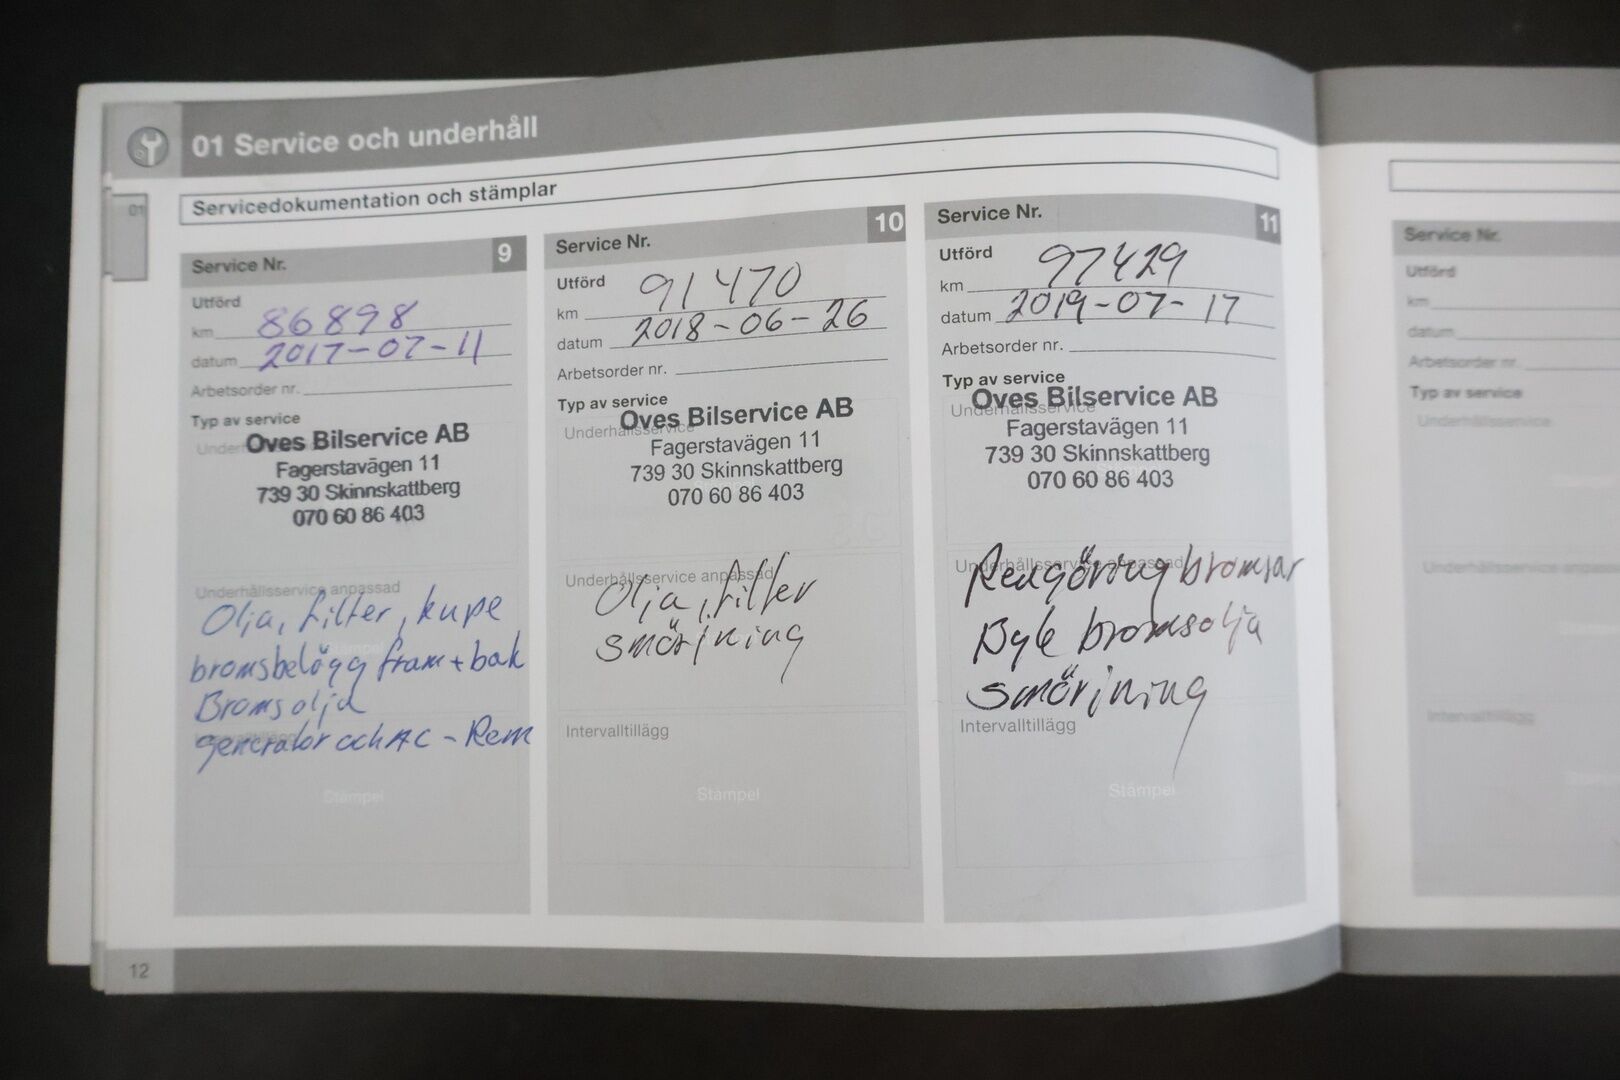 01 Service och underhåll
01
Servicedokumentation och stämplar
Service Nr. 9
Utförd
km 86898
datum 2017-07-11
Arbetsorder nr.
Typ av service
Oves Bilservice AB
Fagerstavägen 11
739 30 Skinnskattberg
070 60 86 403
Underhållsservice anpassad
Olja, filter, kupe
bromsbelägg fram + bak
Bromsolja
generator och AC - Rem
Stämpel
Service Nr. 10
Utförd
km 91470
datum 2018-06-26
Arbetsorder nr.
Typ av service
Underhållsservice
Oves Bilservice AB
Fagerstavägen 11
739 30 Skinnskattberg
070 60 86 403
Underhållsservice anpassad
Olja, filter
smörjning
Intervalltillägg
Stämpel
Service Nr. 11
Utförd
km 97429
datum 2019-07-17
Arbetsorder nr.
Typ av service
Underhållsservice
Oves Bilservice AB
Fagerstavägen 11
739 30 Skinnskattberg
070 60 86 403
Underhållsservice anpassad
Rengöring bromsar
Byte bromsolja
smörjning
Intervalltillägg
Stämpel
Service Nr.
Utförd
km
datum
Arbetsorder nr.
Typ av service
Underhållsservice
Underhållsservice
Intervalltillägg
12